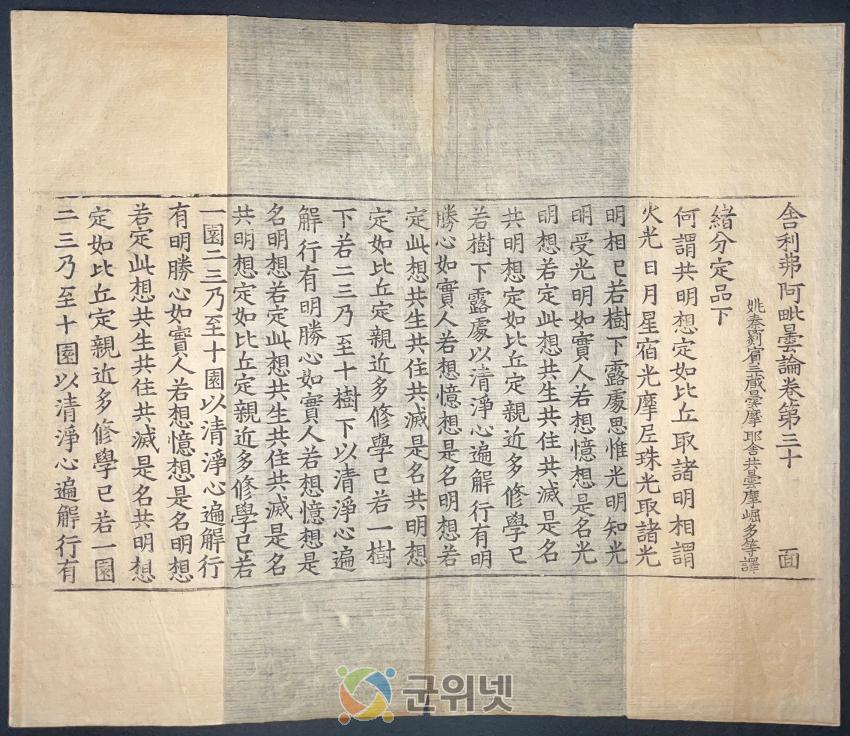 舍利弗阿毗曇論卷第三十 面
姚秦罽賓三藏曇摩耶舍共曇摩崛多等譯
緒分定品下
何謂共明想定如比丘取諸明相謂
火光日月星宿光摩尼珠光取諸光
明相已若樹下露處思惟光明知光
明受光明如實人若想憶想是名光
明想若定此想共生共住共滅是名
共明想定如比丘定親近多修學已
若樹下露處以清淨心遍解行有明
勝心如實人若想憶想是名明想若
定此想共生共住共滅是名共明想
定如比丘定親近多修學已若一樹
下若二三乃至十樹下以清淨心遍
解行有明勝心如實人若想憶想是
名明想若定此想共生共住共滅是名
共明想定如比丘定親近多修學已若
一園二三乃至十園以清淨心遍解行
有明勝心如實人若想憶想是名明想
若定此想共生共住共滅是名共明想
定如比丘定親近多修學已若一園
二三乃至十園以清淨心遍解行有
군위넷